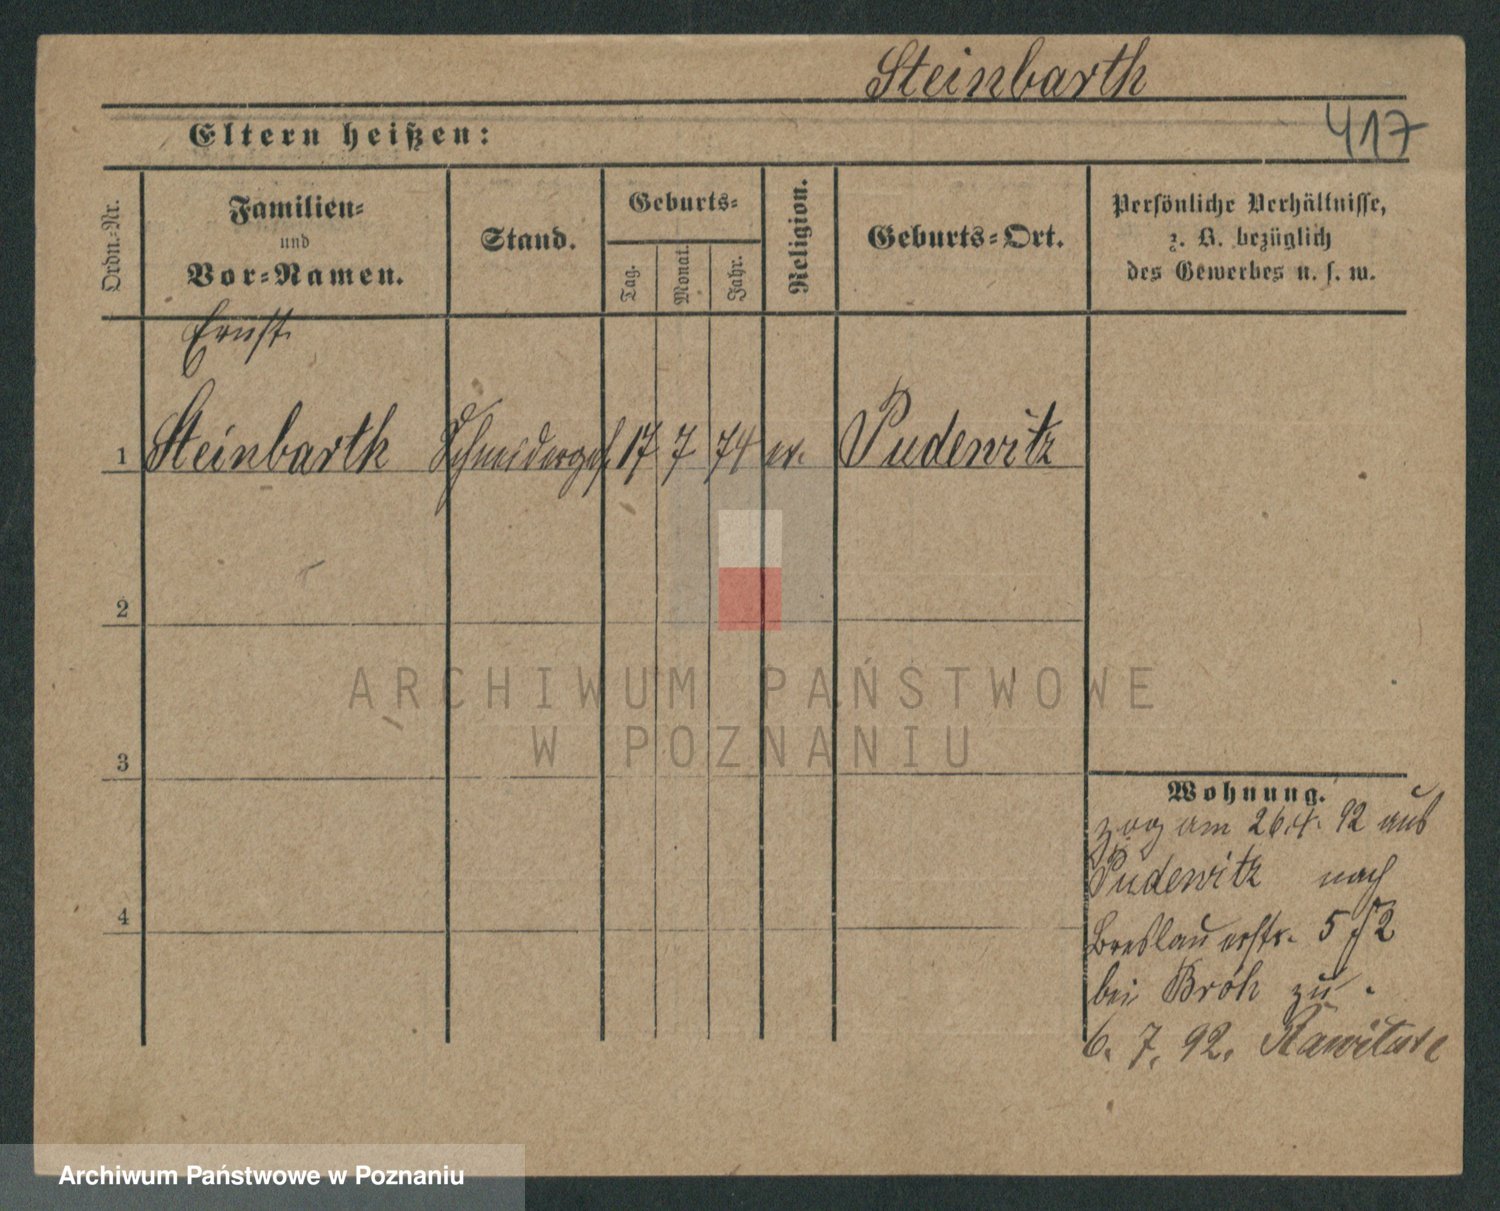 Steinbarth
417
Eltern heißen:
Ordn.=Nr.
Familien=
und
Vor=Namen.
Stand.
Geburts=
Tag.
Monat.
Jahr.
Religion.
Geburts=Ort.
Persönliche Verhältnisse,
z. B. bezüglich
des Gewerbes u. s. w.
Ernst
1 Steinbarth Schneiderges. 17 7 74 ev. Pudewitz
2
3
4
Wohnung.
zog am 26.4. 92 aus
Pudewitz nach
Breslauerstr. 5
bei zu.
6. 7. 92.
ARCHIWUM PAŃSTWOWE
W POZNANIU
Archiwum Państwowe w Poznaniu